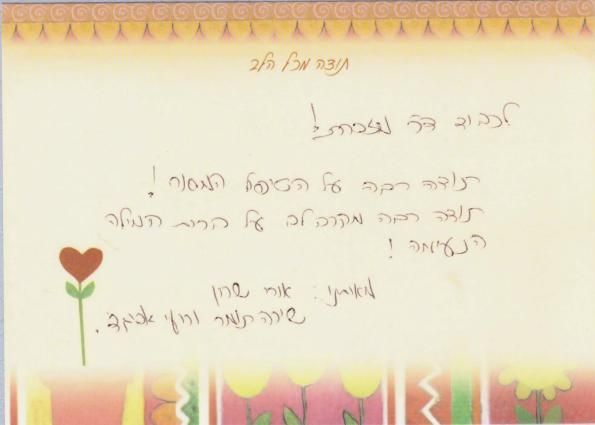 תודה מכל הלב
לכבוד ד"ר
תודה רבה על הטיפול המסור!
תודה רבה מקרב לב על ברית המילה
הנעימה!
מאיתנו: אורי שרון
שירה תומר ורועי